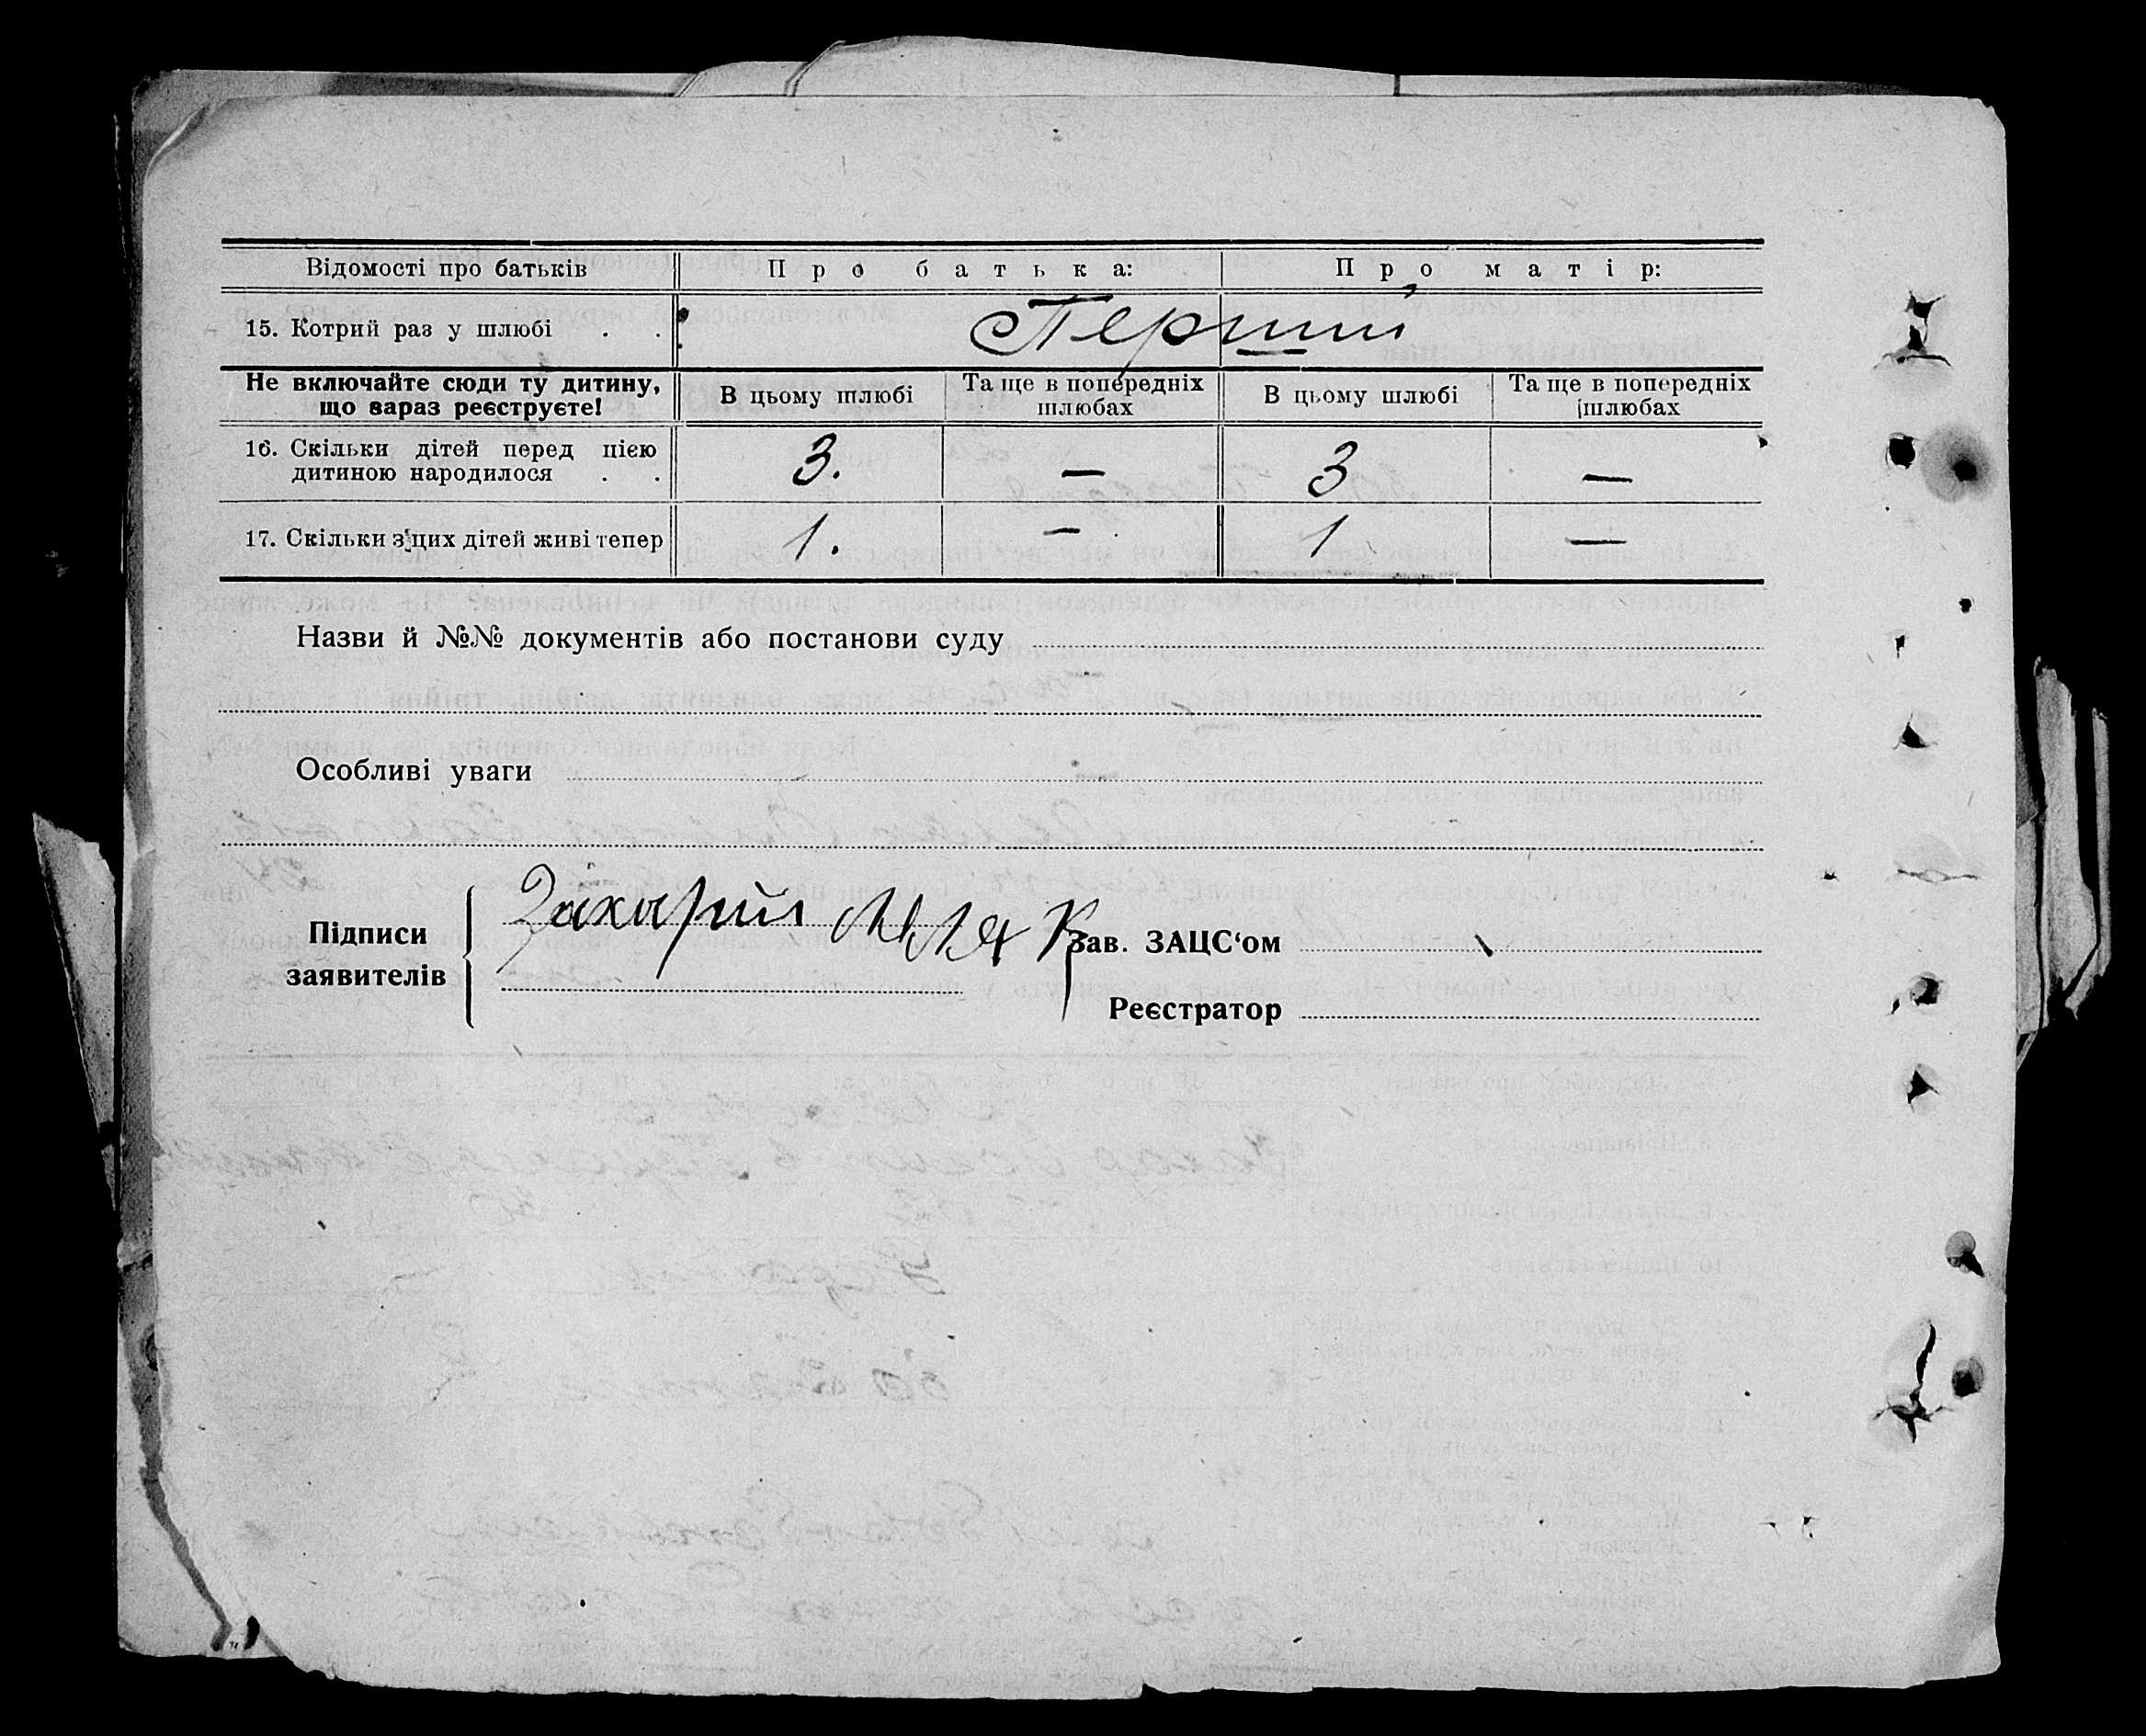 Відомості про батьків Про батька: Про матір:
15. Котрий раз у шлюбі . . Перший
Не включайте сюди ту дитину, що зараз реєструєте! В цьому шлюбі Та ще в попередніх шлюбах В цьому шлюбі Та ще в попередніх шлюбах
16. Скільки дітей перед цією дитиною народилося . . 3. — 3 —
17. Скільки з цих дітей живі тепер 1. — 1 —
Назви й №№ документів або постанови суду
Особливі уваги
Підписи заявителів Захарий
Зав. ЗАЦС‘ом
Реєстратор